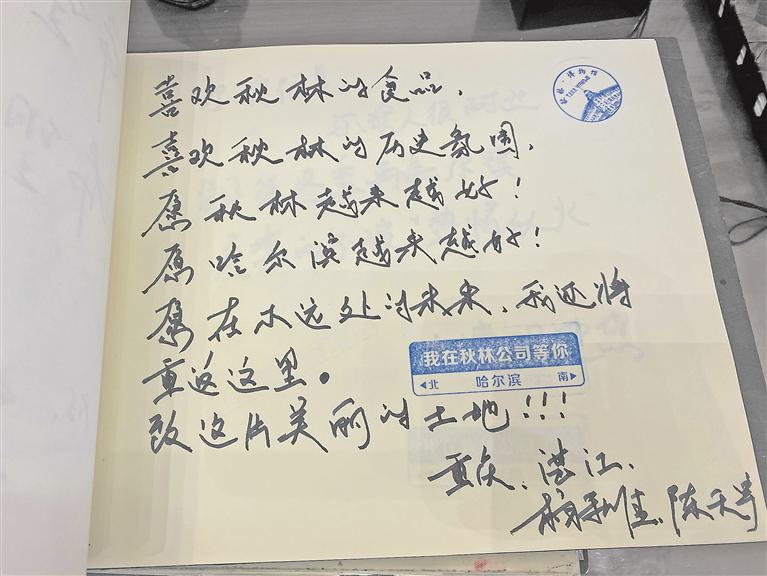 博物馆
喜欢秋林的食品,
喜欢秋林的历史氛围,
愿秋林越来越好!
愿哈尔滨越来越好!
愿在不远处的未来,我还将
重返这里。
我在秋林公司等你
◀北 哈尔滨 南▶
致这片美丽的土地!!!
重庆、湛江、
陈天